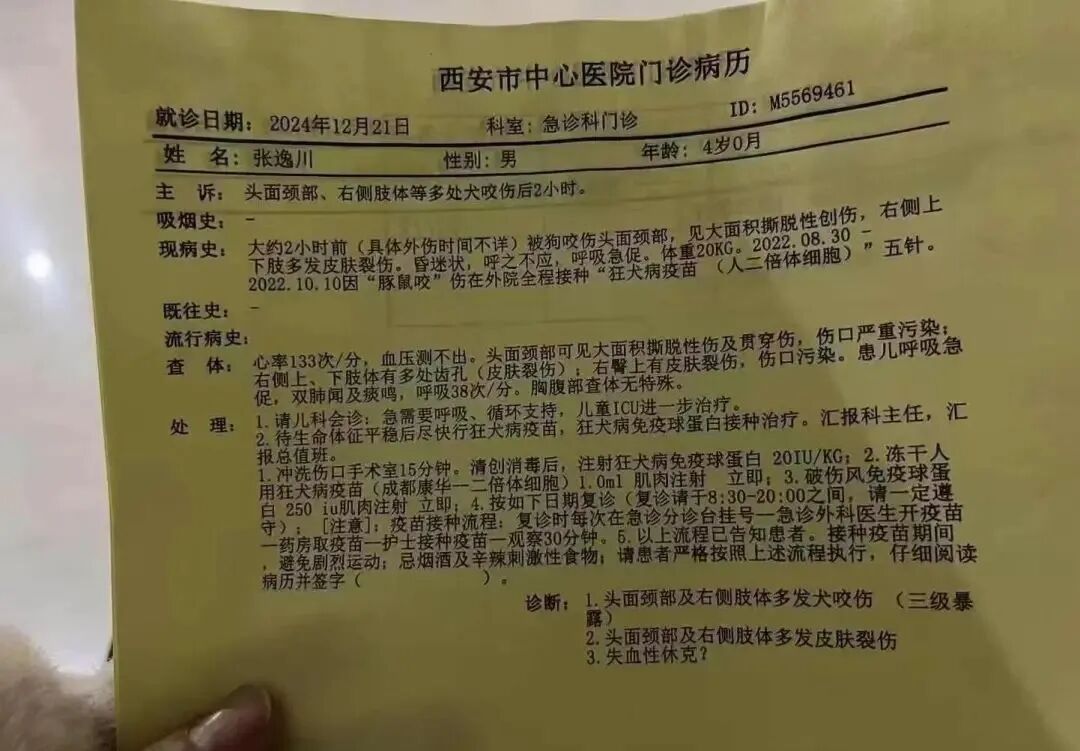 西安市中心医院门诊病历
就诊日期: 2024年12月21日 科室: 急诊科门诊 ID: M5569461
姓 名: 张逸川 性别: 男 年龄: 4岁0月
主 诉: 头面颈部、右侧肢体等多处犬咬伤后2小时。
吸烟史: -
现病史: 大约2小时前（具体外伤时间不详）被狗咬伤头面颈部，见大面积撕脱性创伤，右侧上
下肢多发皮肤裂伤。昏迷状，呼之不应，呼吸急促。体重20KG。2022.08.30 -
2022.10.10因“豚鼠咬”伤在外院全程接种“狂犬病疫苗 （人二倍体细胞）”五针。
既往史: -
流行病史:
查 体: 心率133次/分，血压测不出。头面颈部可见大面积撕脱性伤及贯穿伤，伤口严重污染；
右侧上、下肢体有多处齿孔（皮肤裂伤）；右臀上有皮肤裂伤，伤口污染。患儿呼吸急
促，双肺闻及痰鸣，呼吸38次/分。胸腹部查体无特殊。
处 理: 1.请儿科会诊：急需要呼吸、循环支持，儿童ICU进一步治疗。
2.待生命体征平稳后尽快行狂犬病疫苗，狂犬病免疫球蛋白接种治疗。汇报科主任，汇
报总值班。
1.冲洗伤口手术室15分钟。清创消毒后，注射狂犬病免疫球蛋白 20IU/KG；2.冻干人
用狂犬病疫苗（成都康华一二倍体细胞）1.0ml 肌肉注射 立即；3.破伤风免疫球蛋
白 250 iu肌肉注射 立即；4.按如下日期复诊（复诊请于8:30-20:00之间，请一定遵
守）；［注意］：疫苗接种流程：复诊时每次在急诊分诊台挂号一急诊外科医生开疫苗
一药房取疫苗一护士接种疫苗一观察30分钟。5.以上流程已告知患者。接种疫苗期间
，避免剧烈运动；忌烟酒及辛辣刺激性食物；请患者严格按照上述流程执行，仔细阅读
病历并签字（ ）。
诊断: 1.头面颈部及右侧肢体多发犬咬伤 （三级暴
露）
2.头面颈部及右侧肢体多发皮肤裂伤
3.失血性休克？